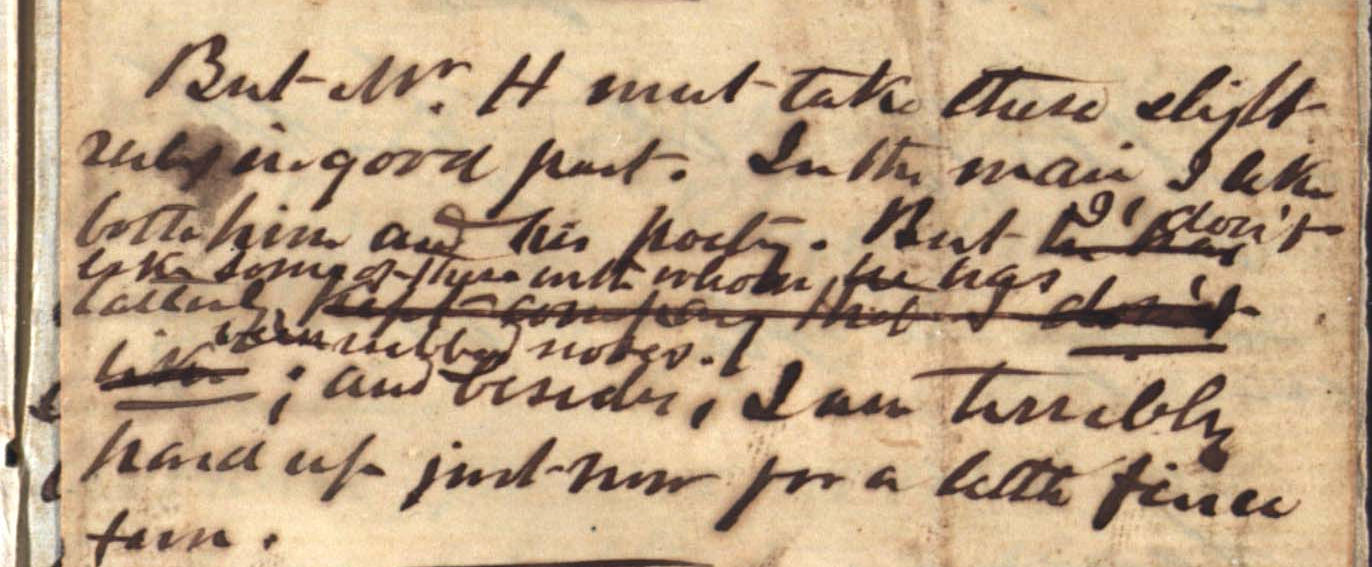 But Mr. H must take these slight
rubs in good part. In the main I like
both him and his poetry. But he has I don't
like some of those with whom he has
latterly kept company that I don't
like been rubbed noses.
; and besides, I am terribly
hard up just now for a little
.